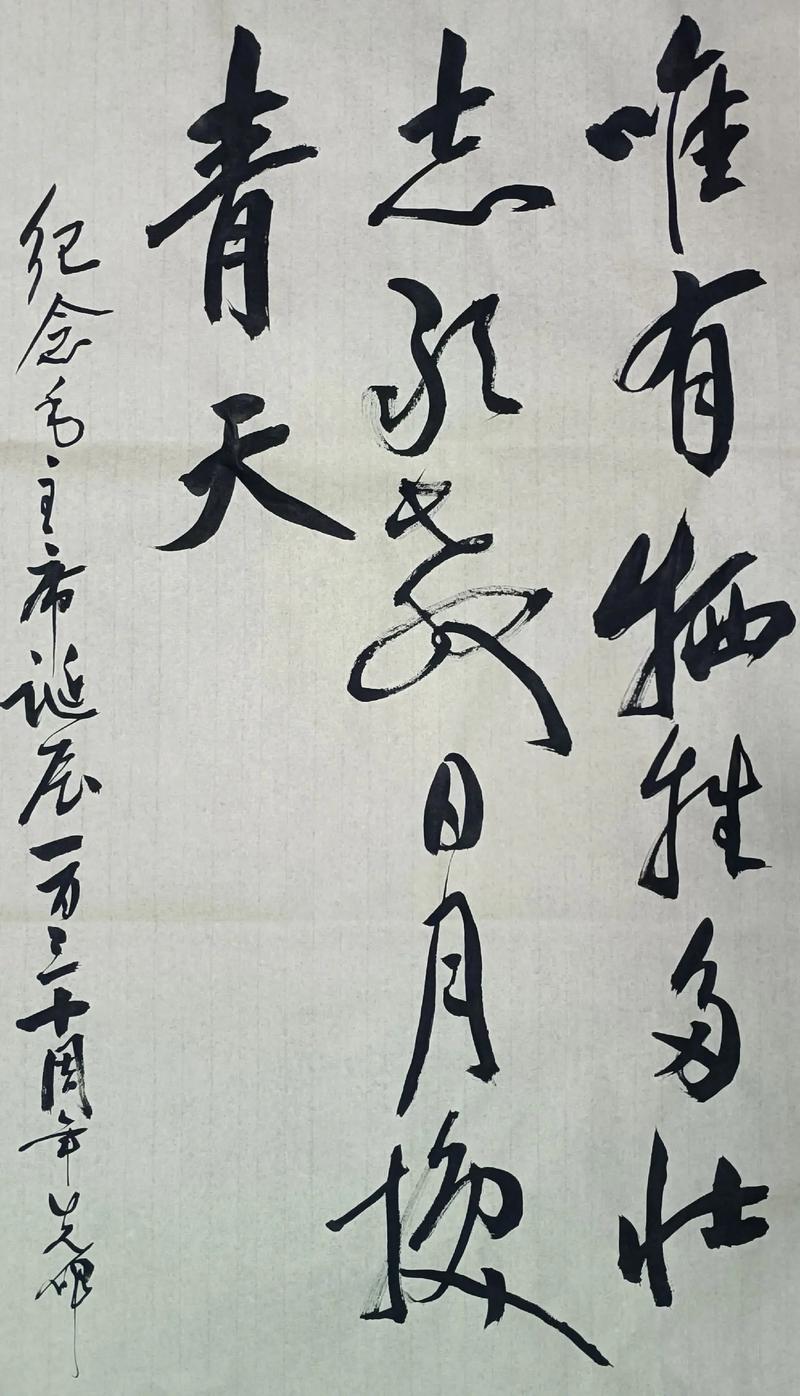 唯有牺牲多壮
志敢教日月换
青天
纪念毛主席诞辰一百三十周年